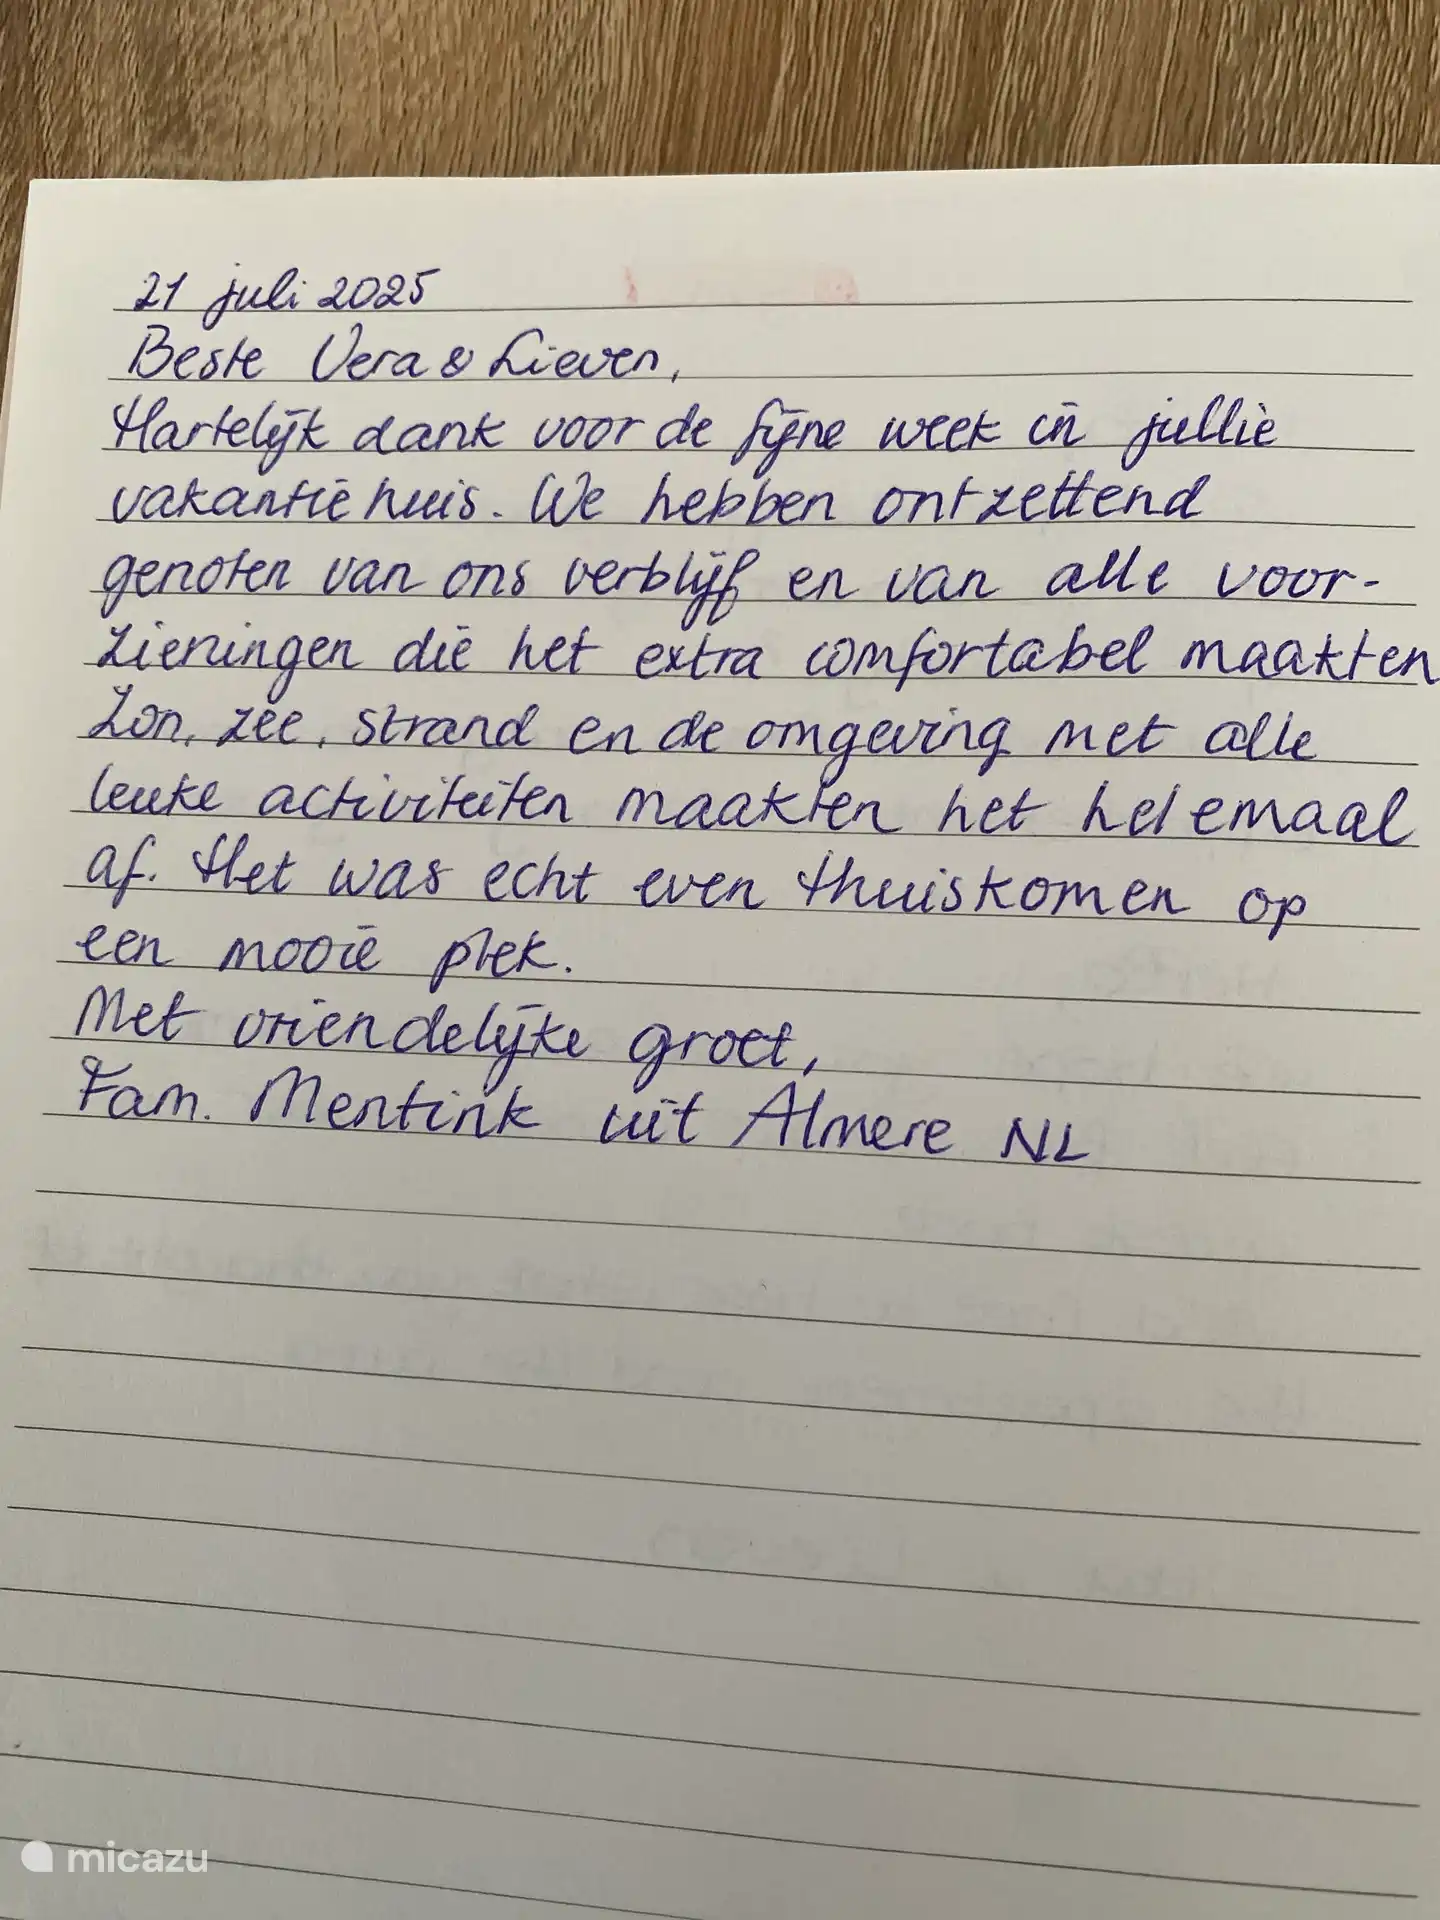 21 juli 2025
Beste Vera & Lieven,
Hartelijk dank voor de fijne week in jullie
vakantie huis. We hebben ontzettend
genoten van ons verblijf en van alle voor-
zieningen die het extra comfortabel maakten
Zon, zee, strand en de omgeving met alle
leuke activiteiten maakten het helemaal
af. Het was echt even thuiskomen op
een mooie plek.
Met vriendelijke groet,
Fam. Mentink uit Almere NL
micazu